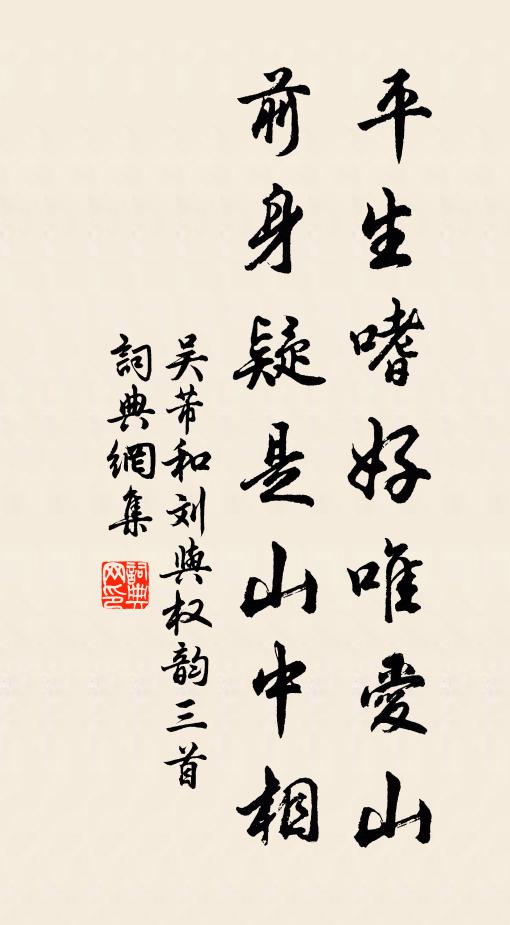 平生嗜好唯愛山
前身疑是山中相
吴芾和刘與权韵三首
詞典網集
詞典网印